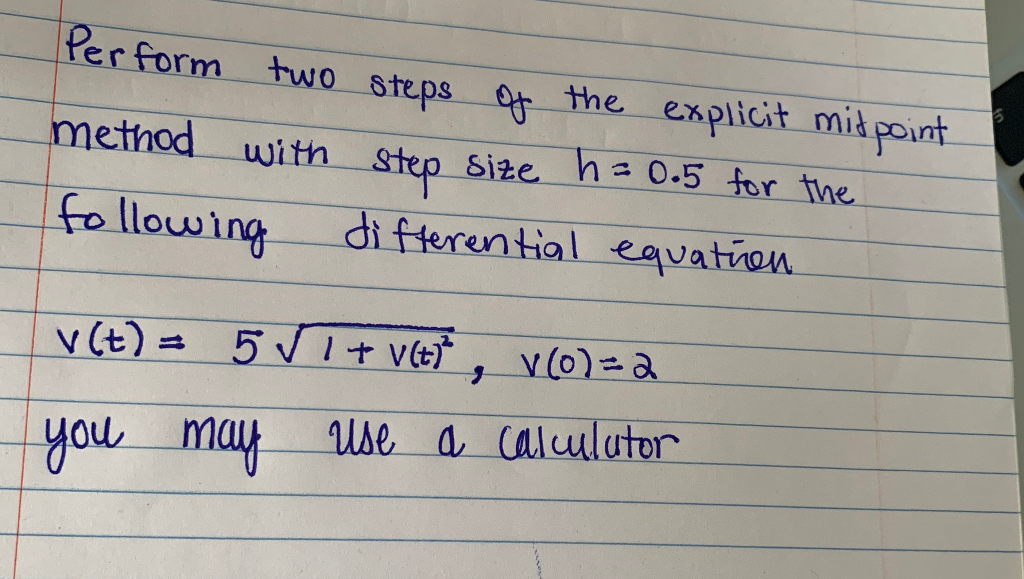 Perform two steps of the explicit midpoint
method with step size h = 0.5 for the
following differential equation
v(t) = 5√(1 + v(t)²), v(0) = 2
you may use a calculator